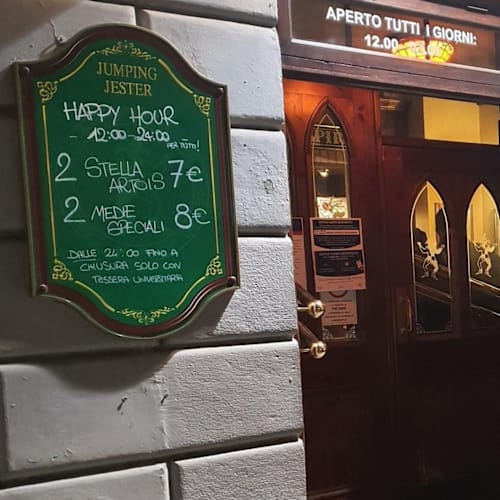 APERTO TUTTI I GIORNI:
12.00
JUMPING
JESTER
HAPPY HOUR
- 12:00-24:00
PER TUTTI!
2 STELLA ARTOIS 7€
2 MEDIE SPECIALI 8€
DALLE 24:00 FINO A
CHIUSURA SOLO CON
TESSERA UNIVERSITARIA